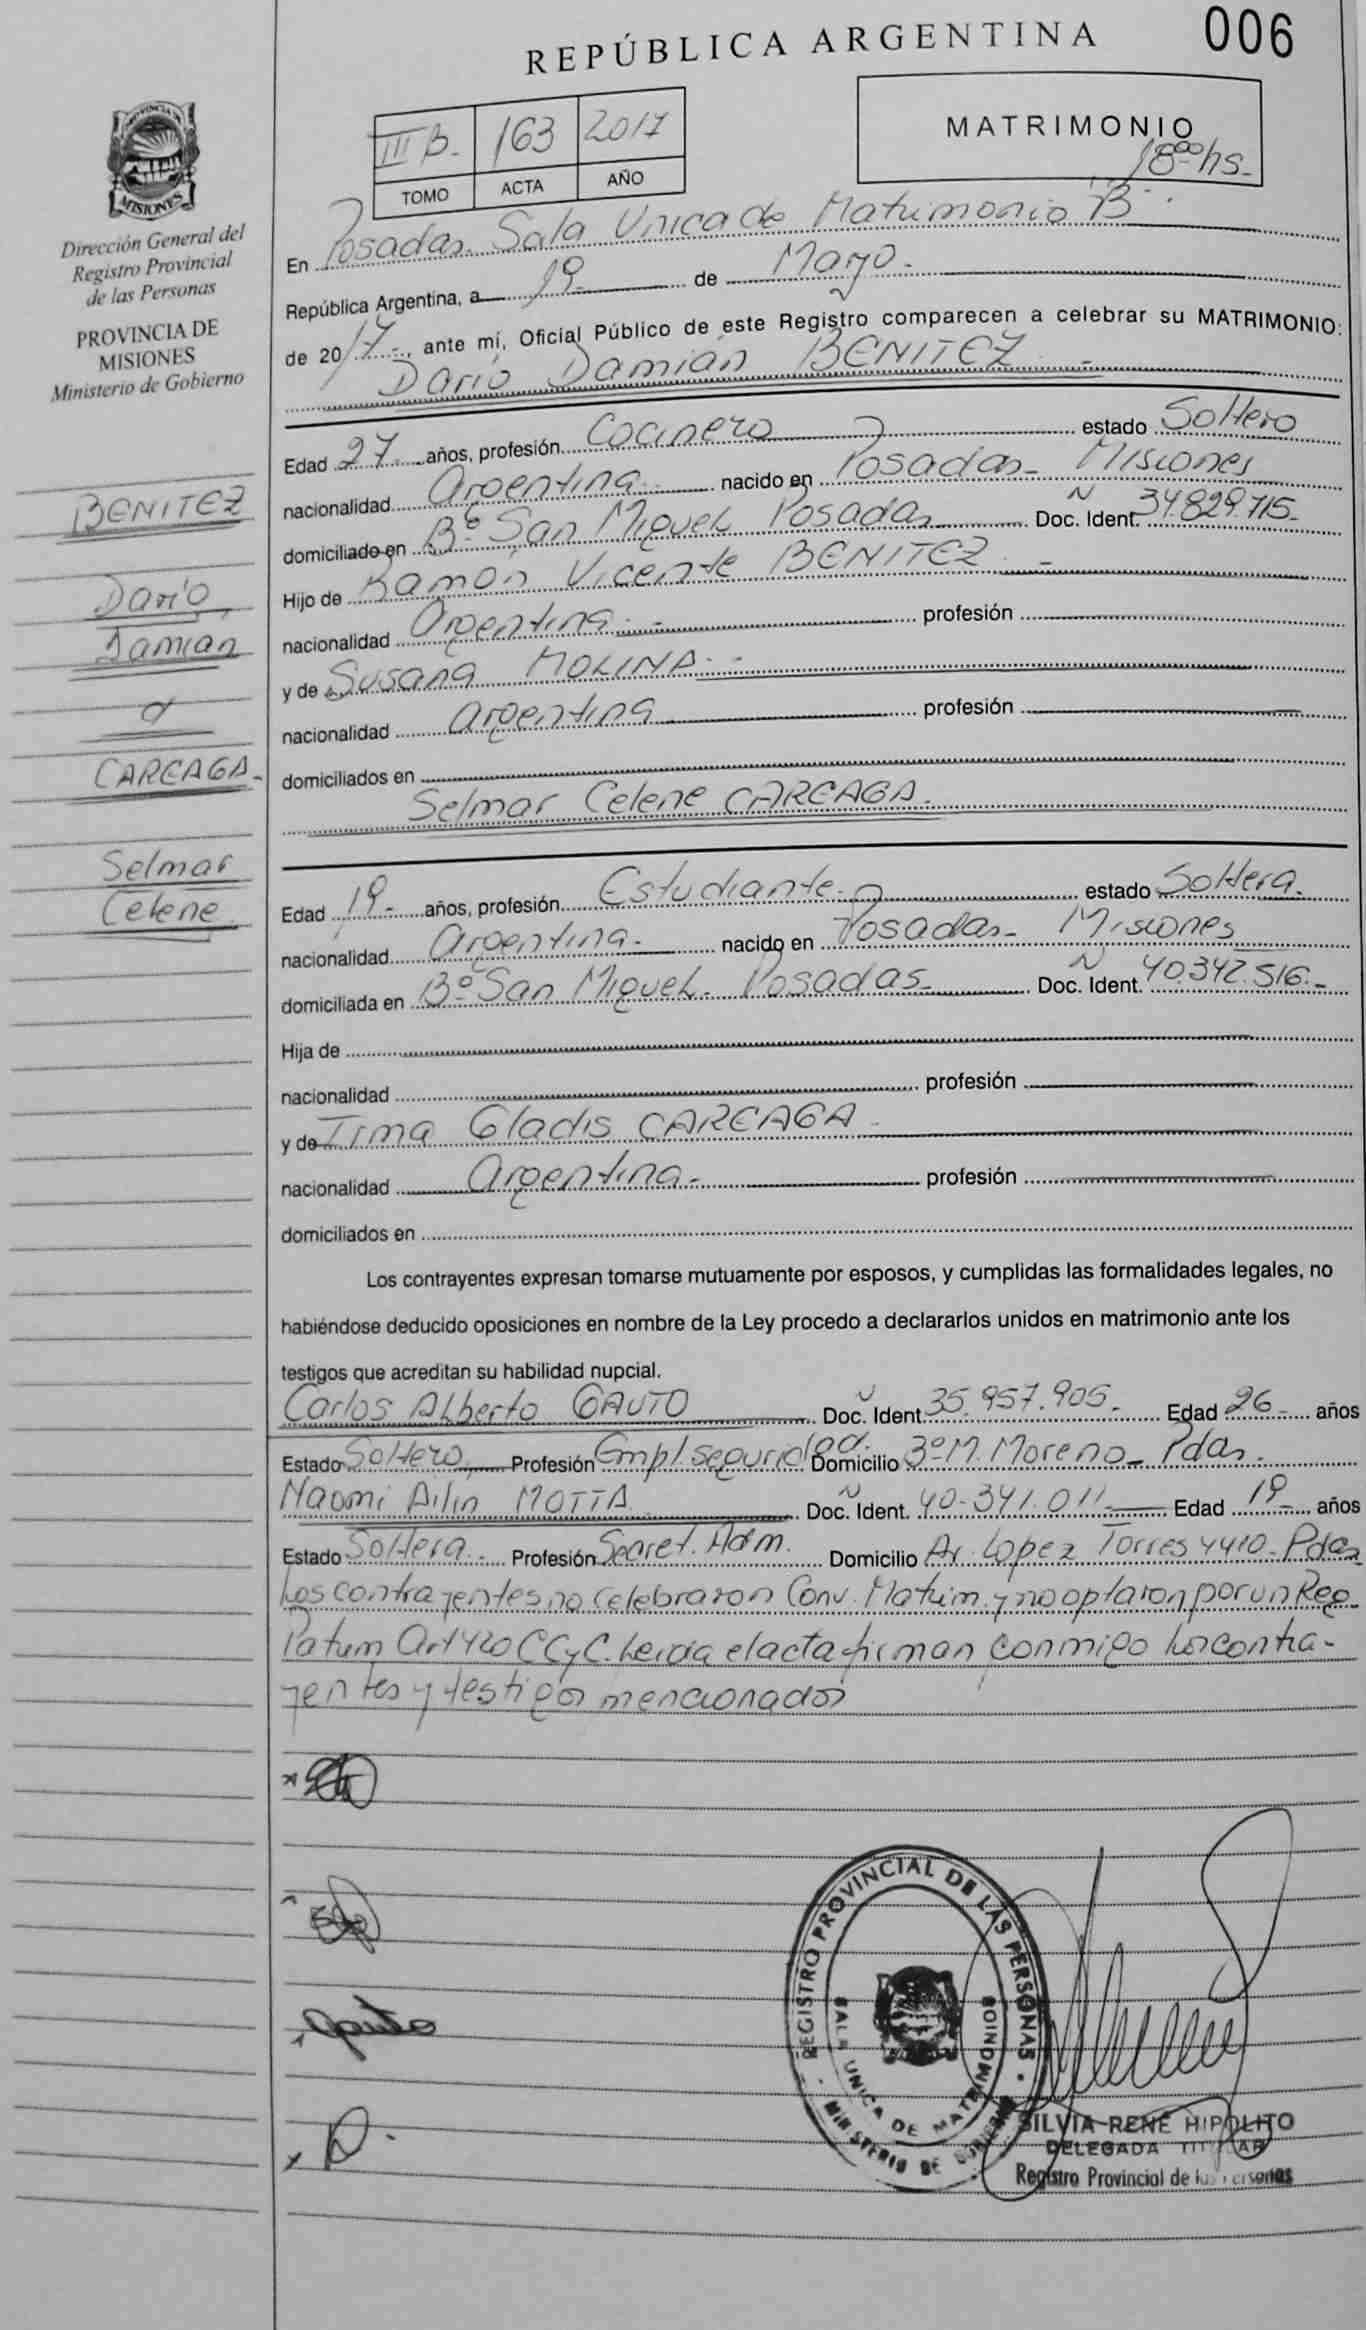 006
REPÚBLICA ARGENTINA
PROVINCIA DE
MISIONES
Dirección General del
Registro Provincial
de las Personas
PROVINCIA DE
MISIONES
Ministerio de Gobierno
III B. 163 2017
TOMO ACTA AÑO
MATRIMONIO
18 00 hs.
En Posadas Sala Unica de Matrimonio B
República Argentina, a 19 de Mayo
de 2017, ante mí, Oficial Público de este Registro comparecen a celebrar su MATRIMONIO:
Darío Damián BENITEZ
BENITEZ
Darío
Damian
CAREAGA
Selmar
Celene
Edad 27 años, profesión Cocinero estado Soltero
nacionalidad Argentina nacido en Posadas Misiones
domiciliado en Bº San Miguel Posadas Doc. Ident. N 34.829.715
Hijo de Ramón Vicente BENITEZ
nacionalidad Argentina profesión
y de Susana MOLINA
nacionalidad argentina profesión
domiciliados en
Selmar Celene CAREAGA
Edad 19 años, profesión Estudiante estado Soltera
nacionalidad argentina nacido en Posadas Misiones
domiciliada en Bº San Miguel Posadas Doc. Ident. N 40.342.516
Hija de
nacionalidad profesión
y de Irma Gladis CAREAGA
nacionalidad Argentina profesión
domiciliados en
Los contrayentes expresan tomarse mutuamente por esposos, y cumplidas las formalidades legales, no
habiéndose deducido oposiciones en nombre de la Ley procedo a declararlos unidos en matrimonio ante los
testigos que acreditan su habilidad nupcial.
Carlos Alberto GAUTO Doc. Ident. 35.957.905 Edad 26 años
Estado Soltero Profesión Empl. seguridad Domicilio Bº M. Moreno Pdas
Naomi Ailin MOTTA Doc. Ident. N 40.341.011 Edad 19 años
Estado Soltera Profesión Secret. Adm. Domicilio Av. Lopez Torres 4410 Pdas
Los contrayentes no celebraron Conv. Matrim. y no optaron por un Reg.
Patrim Art 420 CCyC. Leida el acta firman conmigo los contra-
yentes y testigos mencionados
Gauto
REGISTRO PROVINCIAL DE LAS PERSONAS
SALA UNICA DE MATRIMONIOS
MINISTERIO DE GOBIERNO
SILVIA RENE HIPOLITO
DELEGADA TITULAR
Registro Provincial de las Personas